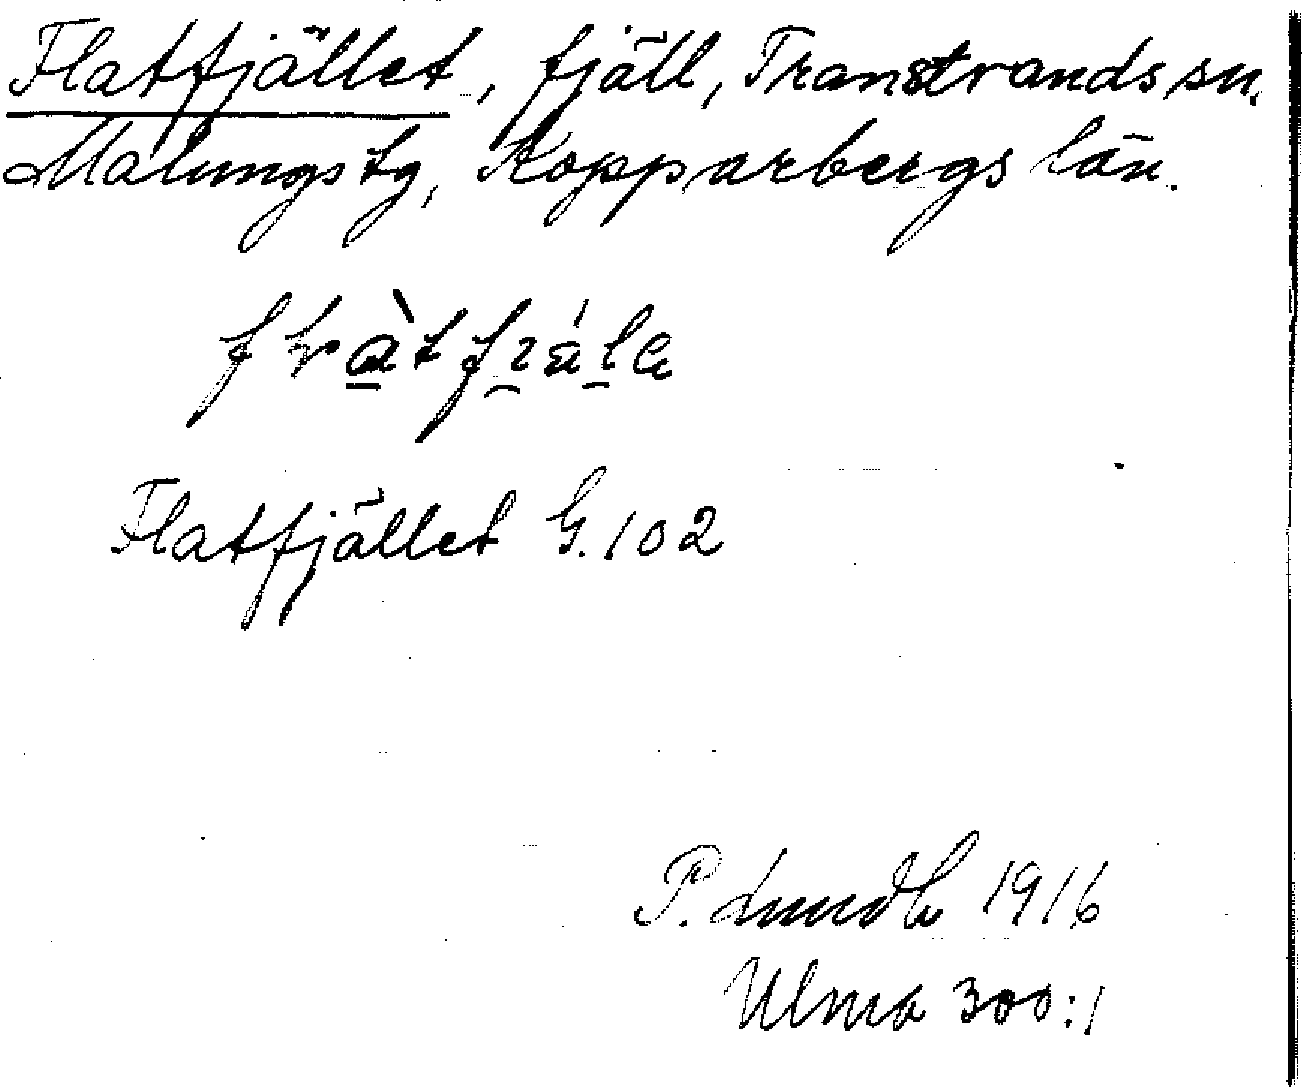 Flatfjället, fjäll, Transtrands sn.
Malungs tg, Kopparbergs län.
Flatfjället G. 102
P. Lundb 1916
Ulma 300:1